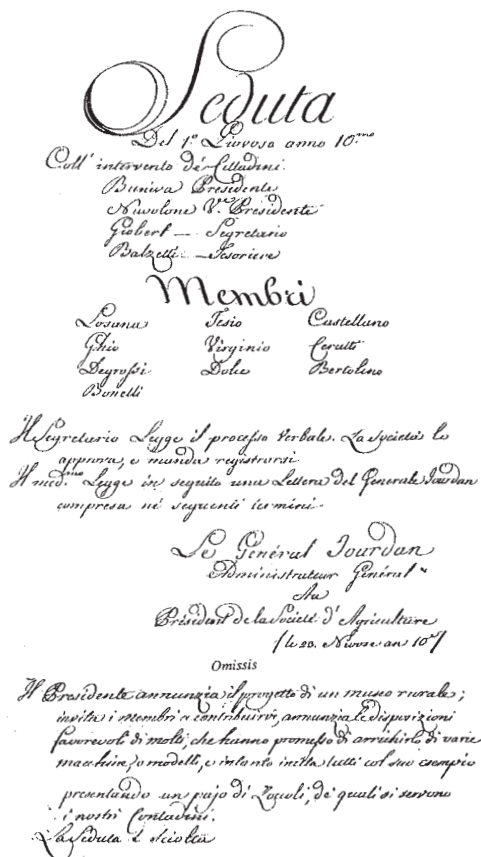 Seduta
Del 1.° Piovoso anno 10.mo
Coll' intervento de' Cittadini.
Buniva Presidente
Nuvolone V.e Presidente
Giobert — Segretario
Balzetti — Tesoriere
Membri
Losana Tesio Castellano
Ghio Virginio Cerutti
Degrossi Dolce Bertolino
Bonelli
Il Segretario Legge il processo Verbale. La Società lo
approva, e manda registrarsi
Il med.imo Legge in seguito una Lettera del Generale Jourdan
compresa nè seguenti termini.
Le Général Jourdan
Administrateur Général
Au
Président de la Société d'Agriculture
le 23. Nivose an 10
Omissis
Il Presidente annunzia il progetto di un museo rurale;
invita i membri a contribuirvi, annunzia le disposizioni
favorevoli di molti, che hanno promesso di arrichirlo di varie
macchine, o modelli, e intanto incita tutti col suo esempio
presentando un pajo di Zoccoli, de' quali si servono
i nostri Contadini.
La Seduta è sciolta